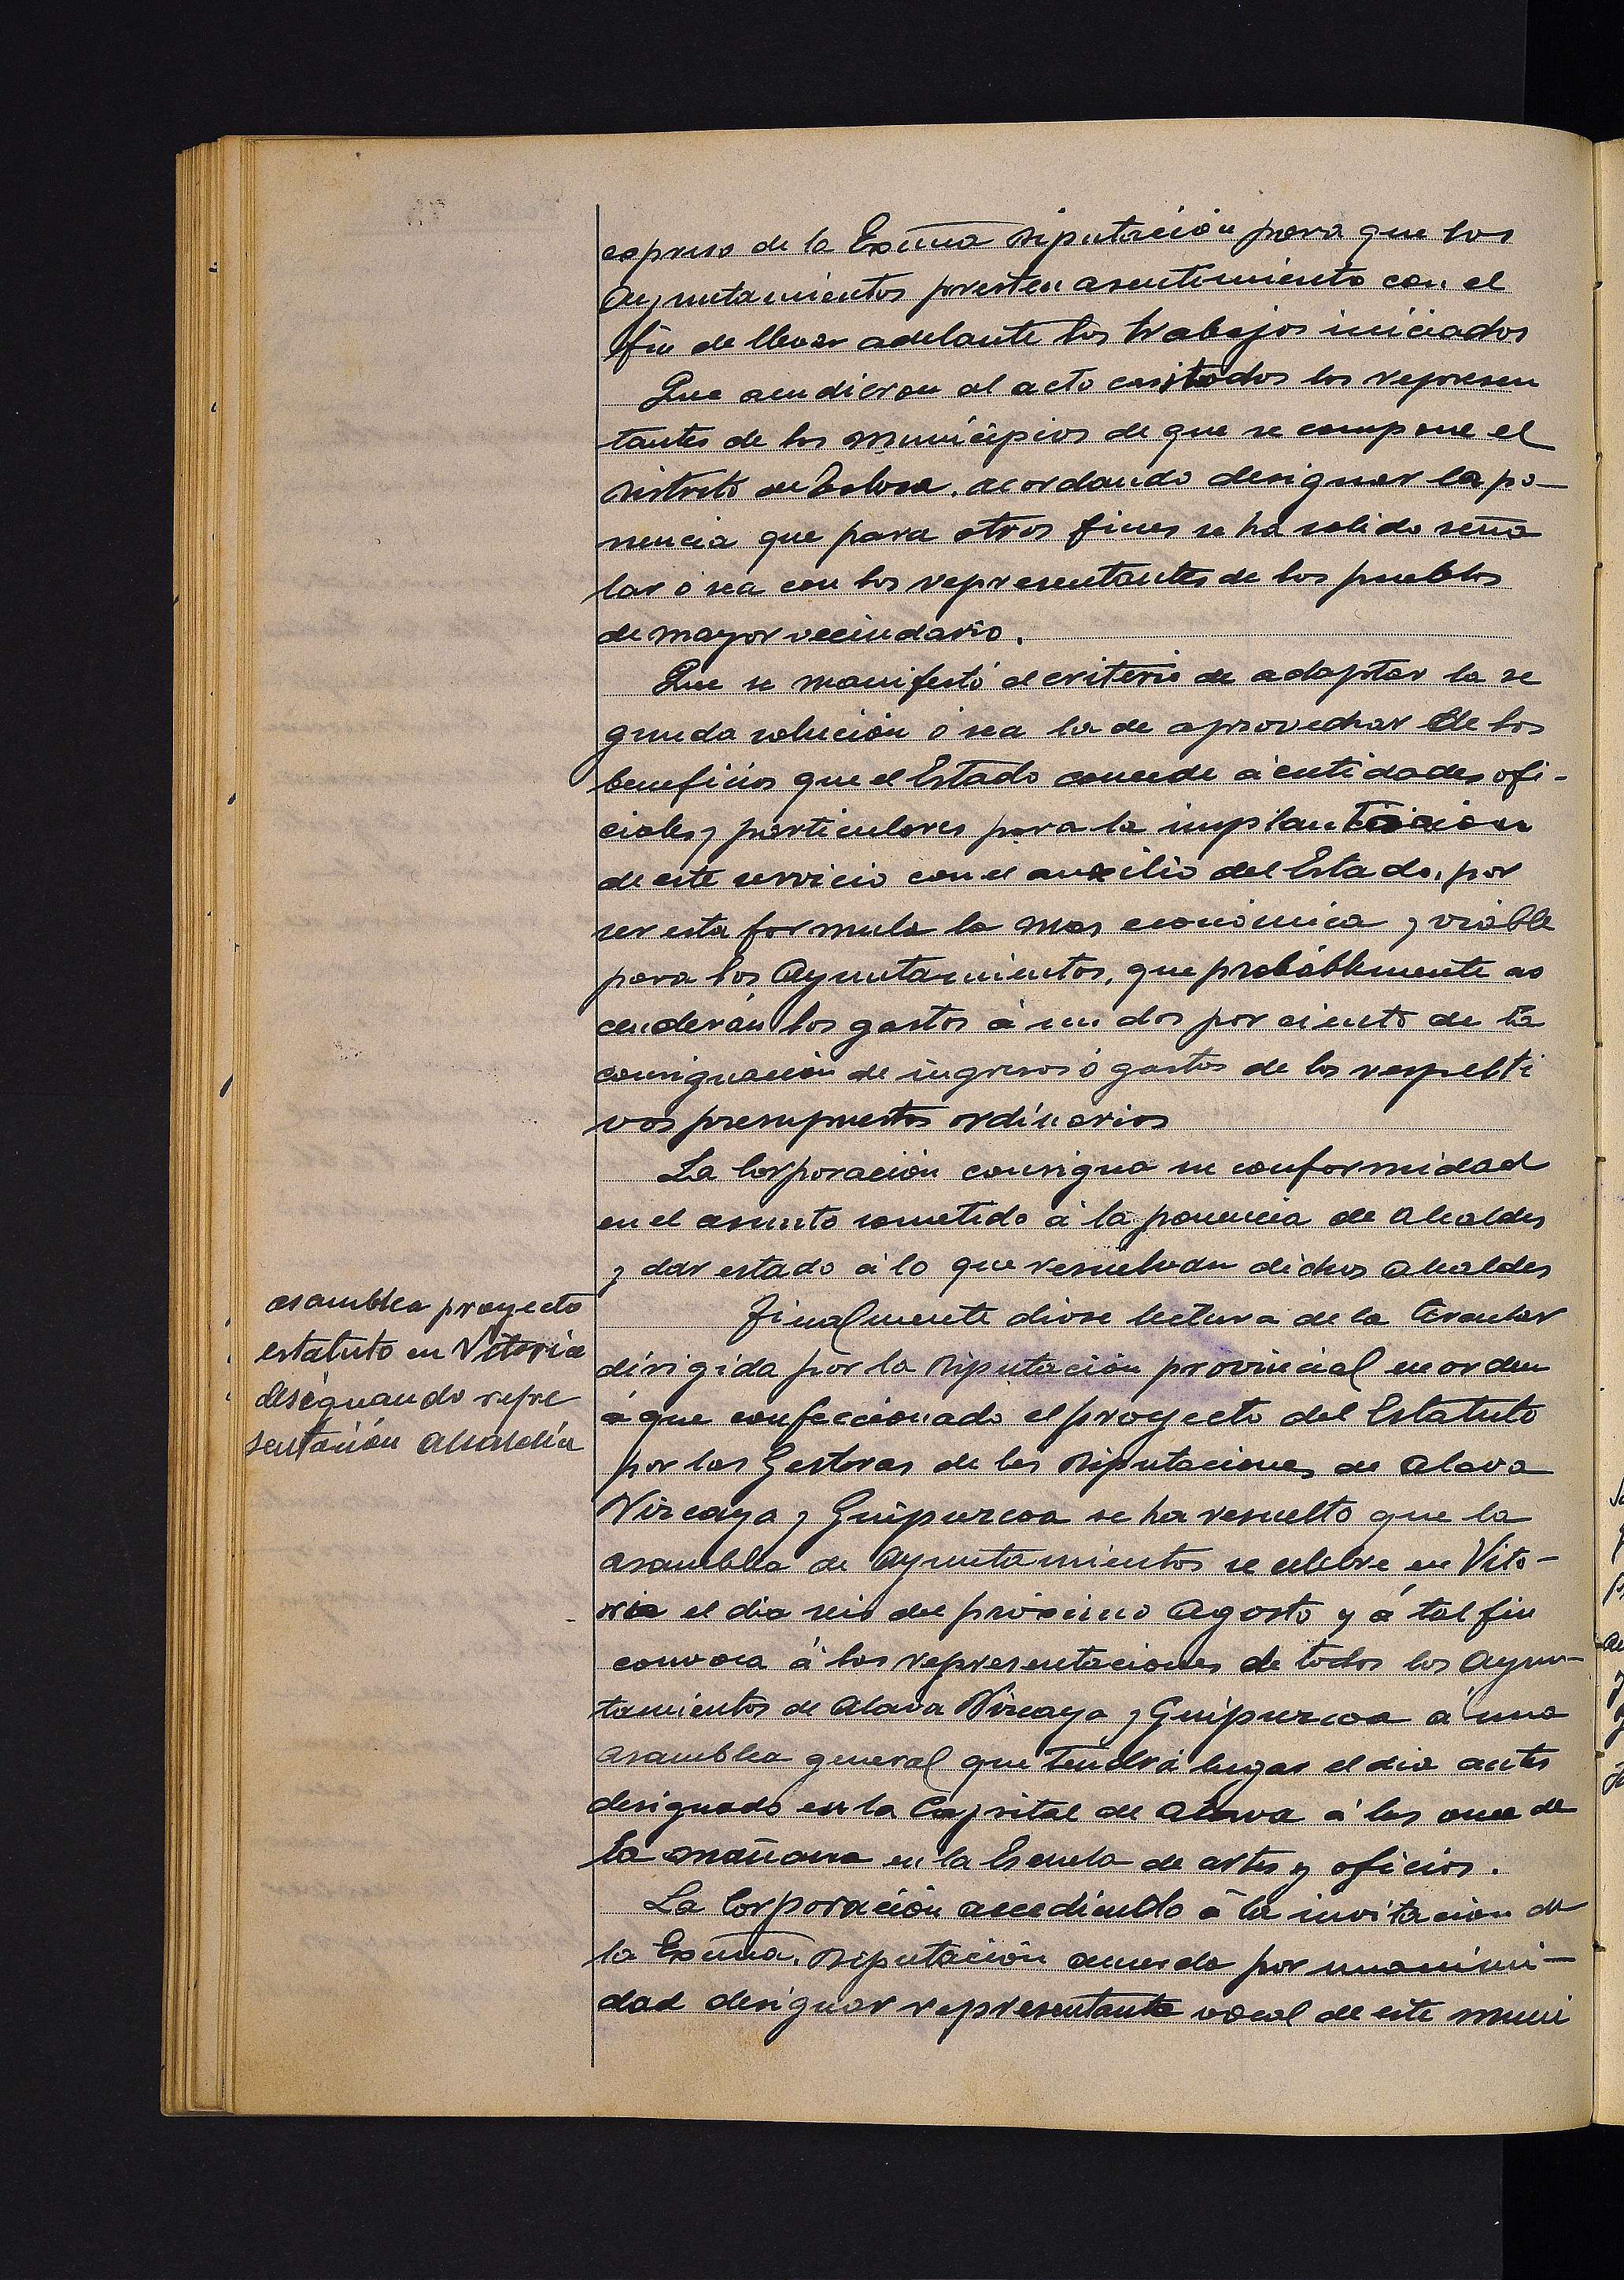 espreso de la Excma Diputación para que los
Ayuntamientos presten asentimiento con el
fin de llevar adelante los trabajos iniciados
Que acudieron al acto casi todos los represen
tantes de los Municipios de que se compone el
distrito de Tolosa, acordando designar la po-
nencia que para otros fines se ha solido seña
lar ó sea con los representantes de los pueblos
de mayor vecindario.
Que se manifestó el criterio de adaptar la se
gunda solución ó sea la de aprovechar de los
beneficios que el Estado concede á entidades ofi-
ciales y particulares para la implantación
de este servicio con el auxilio del Estado, por
ser esta formula la mas económica y viable
para los Ayuntamientos, que probablemente as
cenderán los gastos á un dos por ciento de la
consignación de ingresos ó gastos de los respecti
vos presupuestos ordinarios
La Corporación consigna su conformidad
en el asunto sometido á la ponencia de Alcaldes
y dar estado á lo que resuelvan dichos Alcaldes
asamblea proyecto
estatuto en Vitoria
designando repre
sentación Alcaldía
Finalmente diose lectura de la Circular
dirigida por la Diputación provincial en orden
á que confeccionado el proyecto del Estatuto
por las Gestoras de las Diputaciones de Alava
Vizcaya y Guipuzcoa se ha resuelto que la
asamblea de Ayuntamientos se celebre en Vito-
ria el dia seis del próximo Agosto y á tal fin
convoca á las representaciones de todos los Ayun-
tamientos de Alava Vizcaya y Guipuzcoa á una
asamblea general que tendrá lugar el dia antes
designado en la Capital de Alava á las once de
la mañana en la Escuela de artes y oficios.
La Corporación accediendo á la invitación de
la Excma. Diputación acuerda por unanimi-
dad designar representante vocal de este muni